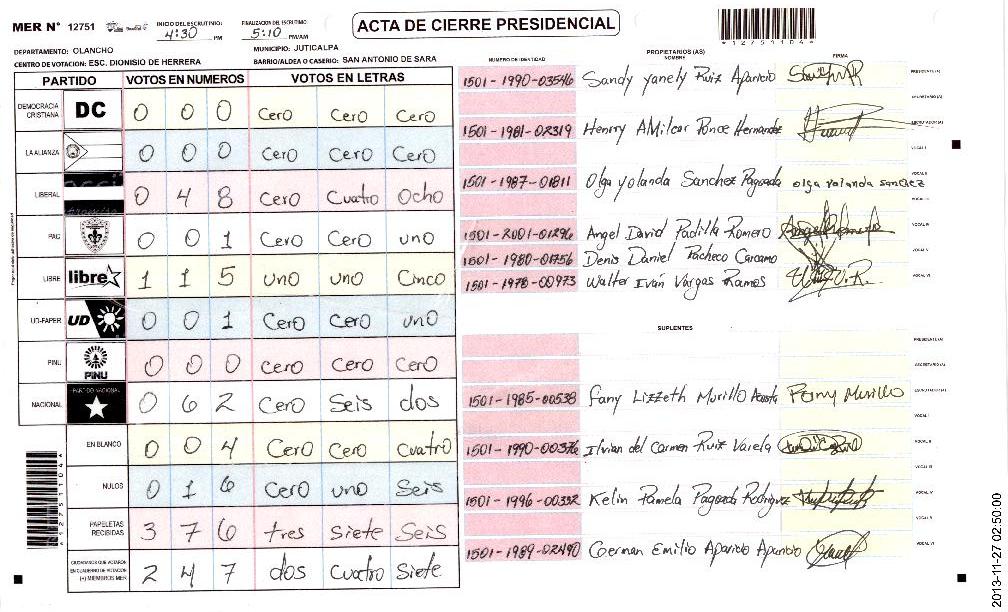 MER Nº 12751
INICIO DEL ESCRUTINIO: 4:30 PM
FINALIZACION DEL ESCRUTINIO: 5:10 PM/AM
ACTA DE CIERRE PRESIDENCIAL
*12751104*
DEPARTAMENTO: OLANCHO
MUNICIPIO: JUTICALPA
CENTRO DE VOTACION: ESC. DIONISIO DE HERRERA
BARRIO/ALDEA O CASERIO: SAN ANTONIO DE SARA
PARTIDO VOTOS EN NUMEROS VOTOS EN LETRAS
DEMOCRACIA CRISTIANA DC 0 0 0 Cero Cero Cero
LA ALIANZA 0 0 0 Cero Cero Cero
LIBERAL 0 4 8 Cero Cuatro Ocho
PAC 0 0 1 Cero Cero uno
LIBRE libre 1 1 5 uno uno Cinco
UD-FAPER UD 0 0 1 Cero Cero uno
PINU PINU 0 0 0 Cero Cero Cero
NACIONAL PARTIDO NACIONAL 0 6 2 Cero Seis dos
EN BLANCO 0 0 4 Cero Cero Cuatro
NULOS 0 1 6 Cero uno Seis
PAPELETAS RECIBIDAS 3 7 6 tres Siete Seis
CIUDADANOS QUE VOTARON EN CUADERNO DE VOTACION (+) MIEMBROS MER 2 4 7 dos Cuatro Siete
PROPIETARIOS (AS)
NUMERO DE IDENTIDAD NOMBRE FIRMA
1501-1990-03546 Sandy yanely Ruiz Aparicio PRESIDENTE (A)
SECRETARIO (A)
1501-1981-02319 Henrry AMilcar Ponce Hernandez ESCRUTADOR (A)
VOCAL I
1501-1987-01811 Olga yolanda Sanchez Pagoada olga yolanda sanchez VOCAL II
VOCAL III
1501-2001-01296 Angel David Padilla Romero VOCAL IV
1501-1980-01756 Denis Daniel Pacheco Carcamo VOCAL V
1501-1978-00973 Walter Iván Vargas Ramos VOCAL VI
SUPLENTES
PRESIDENTE (A)
SECRETARIO (A)
1501-1985-00538 Fany Lizzeth Murillo Acosta Fany Murillo ESCRUTADOR (A)
VOCAL I
1501-1990-00376 Ilvian del Carmen Ruiz Varela VOCAL II
VOCAL III
1501-1996-00392 Kelin Pamela Pagoada Rodriguez VOCAL IV
VOCAL V
1501-1989-02490 Coerman Emilio Aparicio Aparicio VOCAL VI
*12751104*
2013-11-27 02:50:00